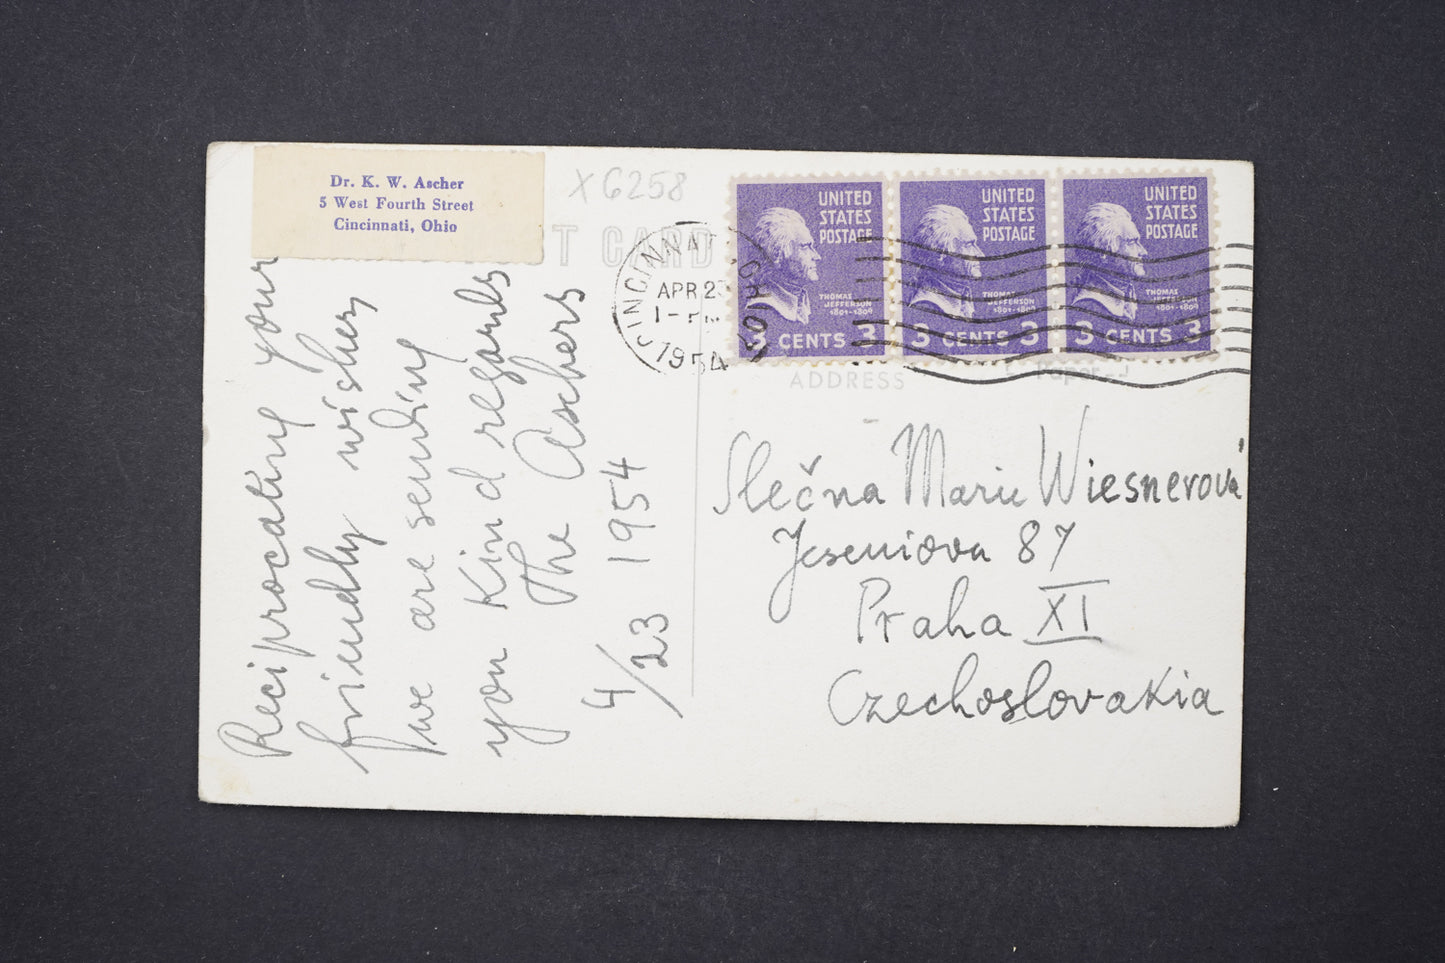 Dr. K. W. Ascher
5 West Fourth Street
Cincinnati, Ohio
X 6258
T CARD
CINCINNATI OHIO
APR 23
1954
UNITED
STATES
POSTAGE
THOMAS
JEFFERSON
1801-1809
3 CENTS 3
UNITED
STATES
POSTAGE
THOMAS
JEFFERSON
1801-1809
3 CENTS 3
UNITED
STATES
POSTAGE
THOMAS
JEFFERSON
1801-1809
3 CENTS 3
ADDRESS
Paper
Reciprocating your
friendly wishes
we are sending
you Kind regards
The Aschers
4/23 1954
Slečna Marie Wiesnerová
Jeseniova 87
Praha XI
Czechoslovakia